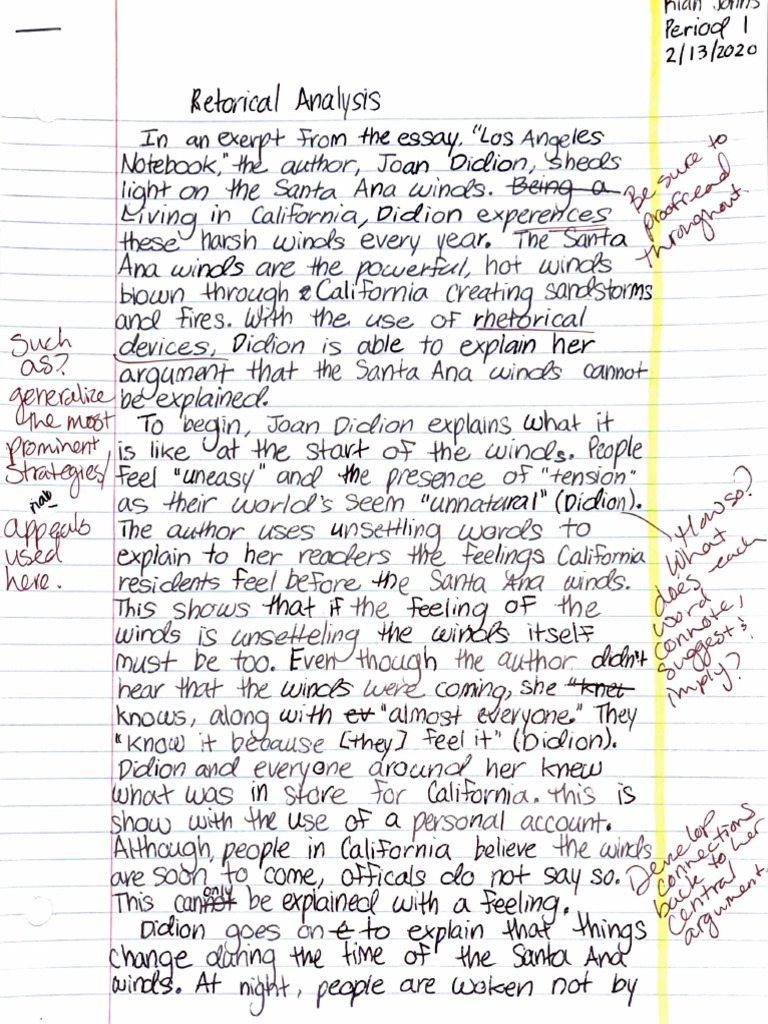 Kian Johns
Period 1
2/13/2020
Retorical Analysis
In an exerpt from the essay, "Los Angeles
Notebook," the author, Joan Didion, sheds
light on the Santa Ana winds. Being a
Living in California, Didion experences
these harsh winds every year. The Santa
Ana winds are the powerful, hot winds
blown through California creating sandstorms
and fires. With the use of rhetorical
devices, Didion is able to explain her
argument that the Santa Ana winds cannot
be explained.
To begin, Joan Didion explains what it
is like at the start of the winds. People
feel "uneasy" and the presence of "tension"
as their world's seem "unnatural" (Didion).
The author uses unsettling words to
explain to her readers the feelings California
residents feel before the Santa Ana winds.
This shows that if the feeling of the
winds is unsetteling the winds itself
must be too. Even though the author didn't
hear that the winds were coming, she "knet
knows, along with ev "almost everyone." They
"know it because [they] feel it" (Didion).
Didion and everyone around her knew
what was in store for California. This is
show with the use of a personal account.
Although, people in California believe the winds
are soon to come, officals do not say so.
This cannot only be explained with a feeling.
Didion goes on to explain that things
change during the time of the Santa Ana
winds. At night, people are woken not by
Be sure to
proofread
throughout.
Such
as?
generalize
the most
prominent
strategies/
appeals
used
here.
How so?
What
does each
word
connote,
suggest &
imply?
Develop
connections
back to her
central
argument.